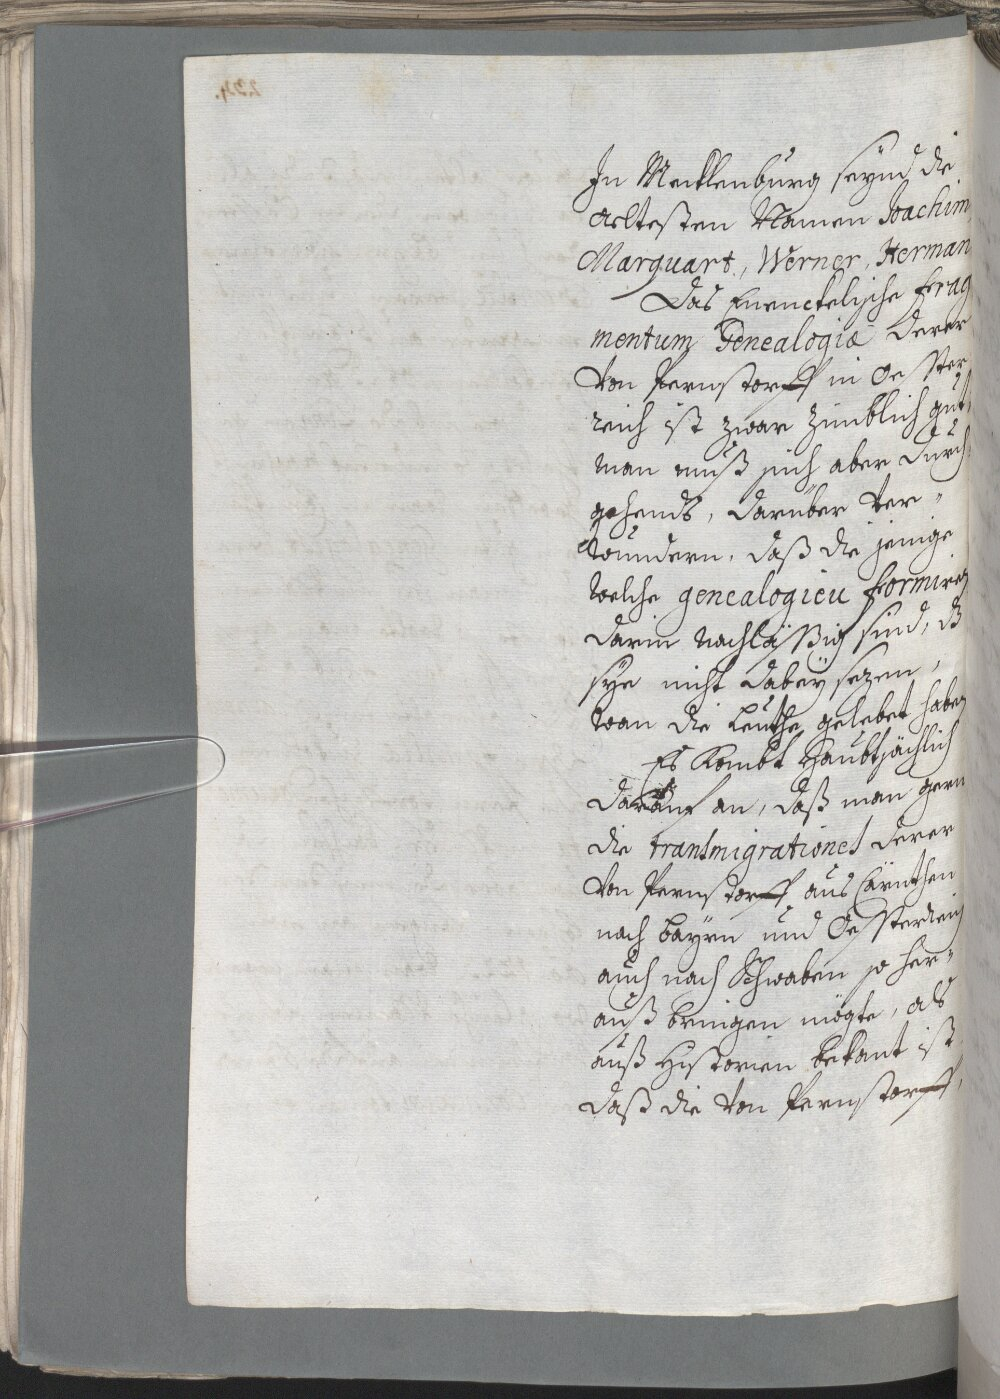 In Mecklenburg seynd die
aeltesten Namen Joachim,
Marquart, Werner, Herman
Das Enenckelische Frag
mentum Genealogiæ derer
von Pernstorff in Oester
reich ist zwar zimblich gut,
man muß sich aber durch-
gehends, darüber ver-
wundern, daß die jenige
welche genealogien formiren
darin nachläßig sind, dß
sye nicht dabeÿ sezen,
wan die Leuthe gelebet haben
Es kombt Haubtsächlich
darauf an, daß man gern
die transmigrationes derer
von Pernstorff aus Cärnthen
nach baÿrn und Oesterreich
auch nach Schwaben so her-
auß bringen mögte, als
auß Historien bekant ist
daß die von Pernstorff,